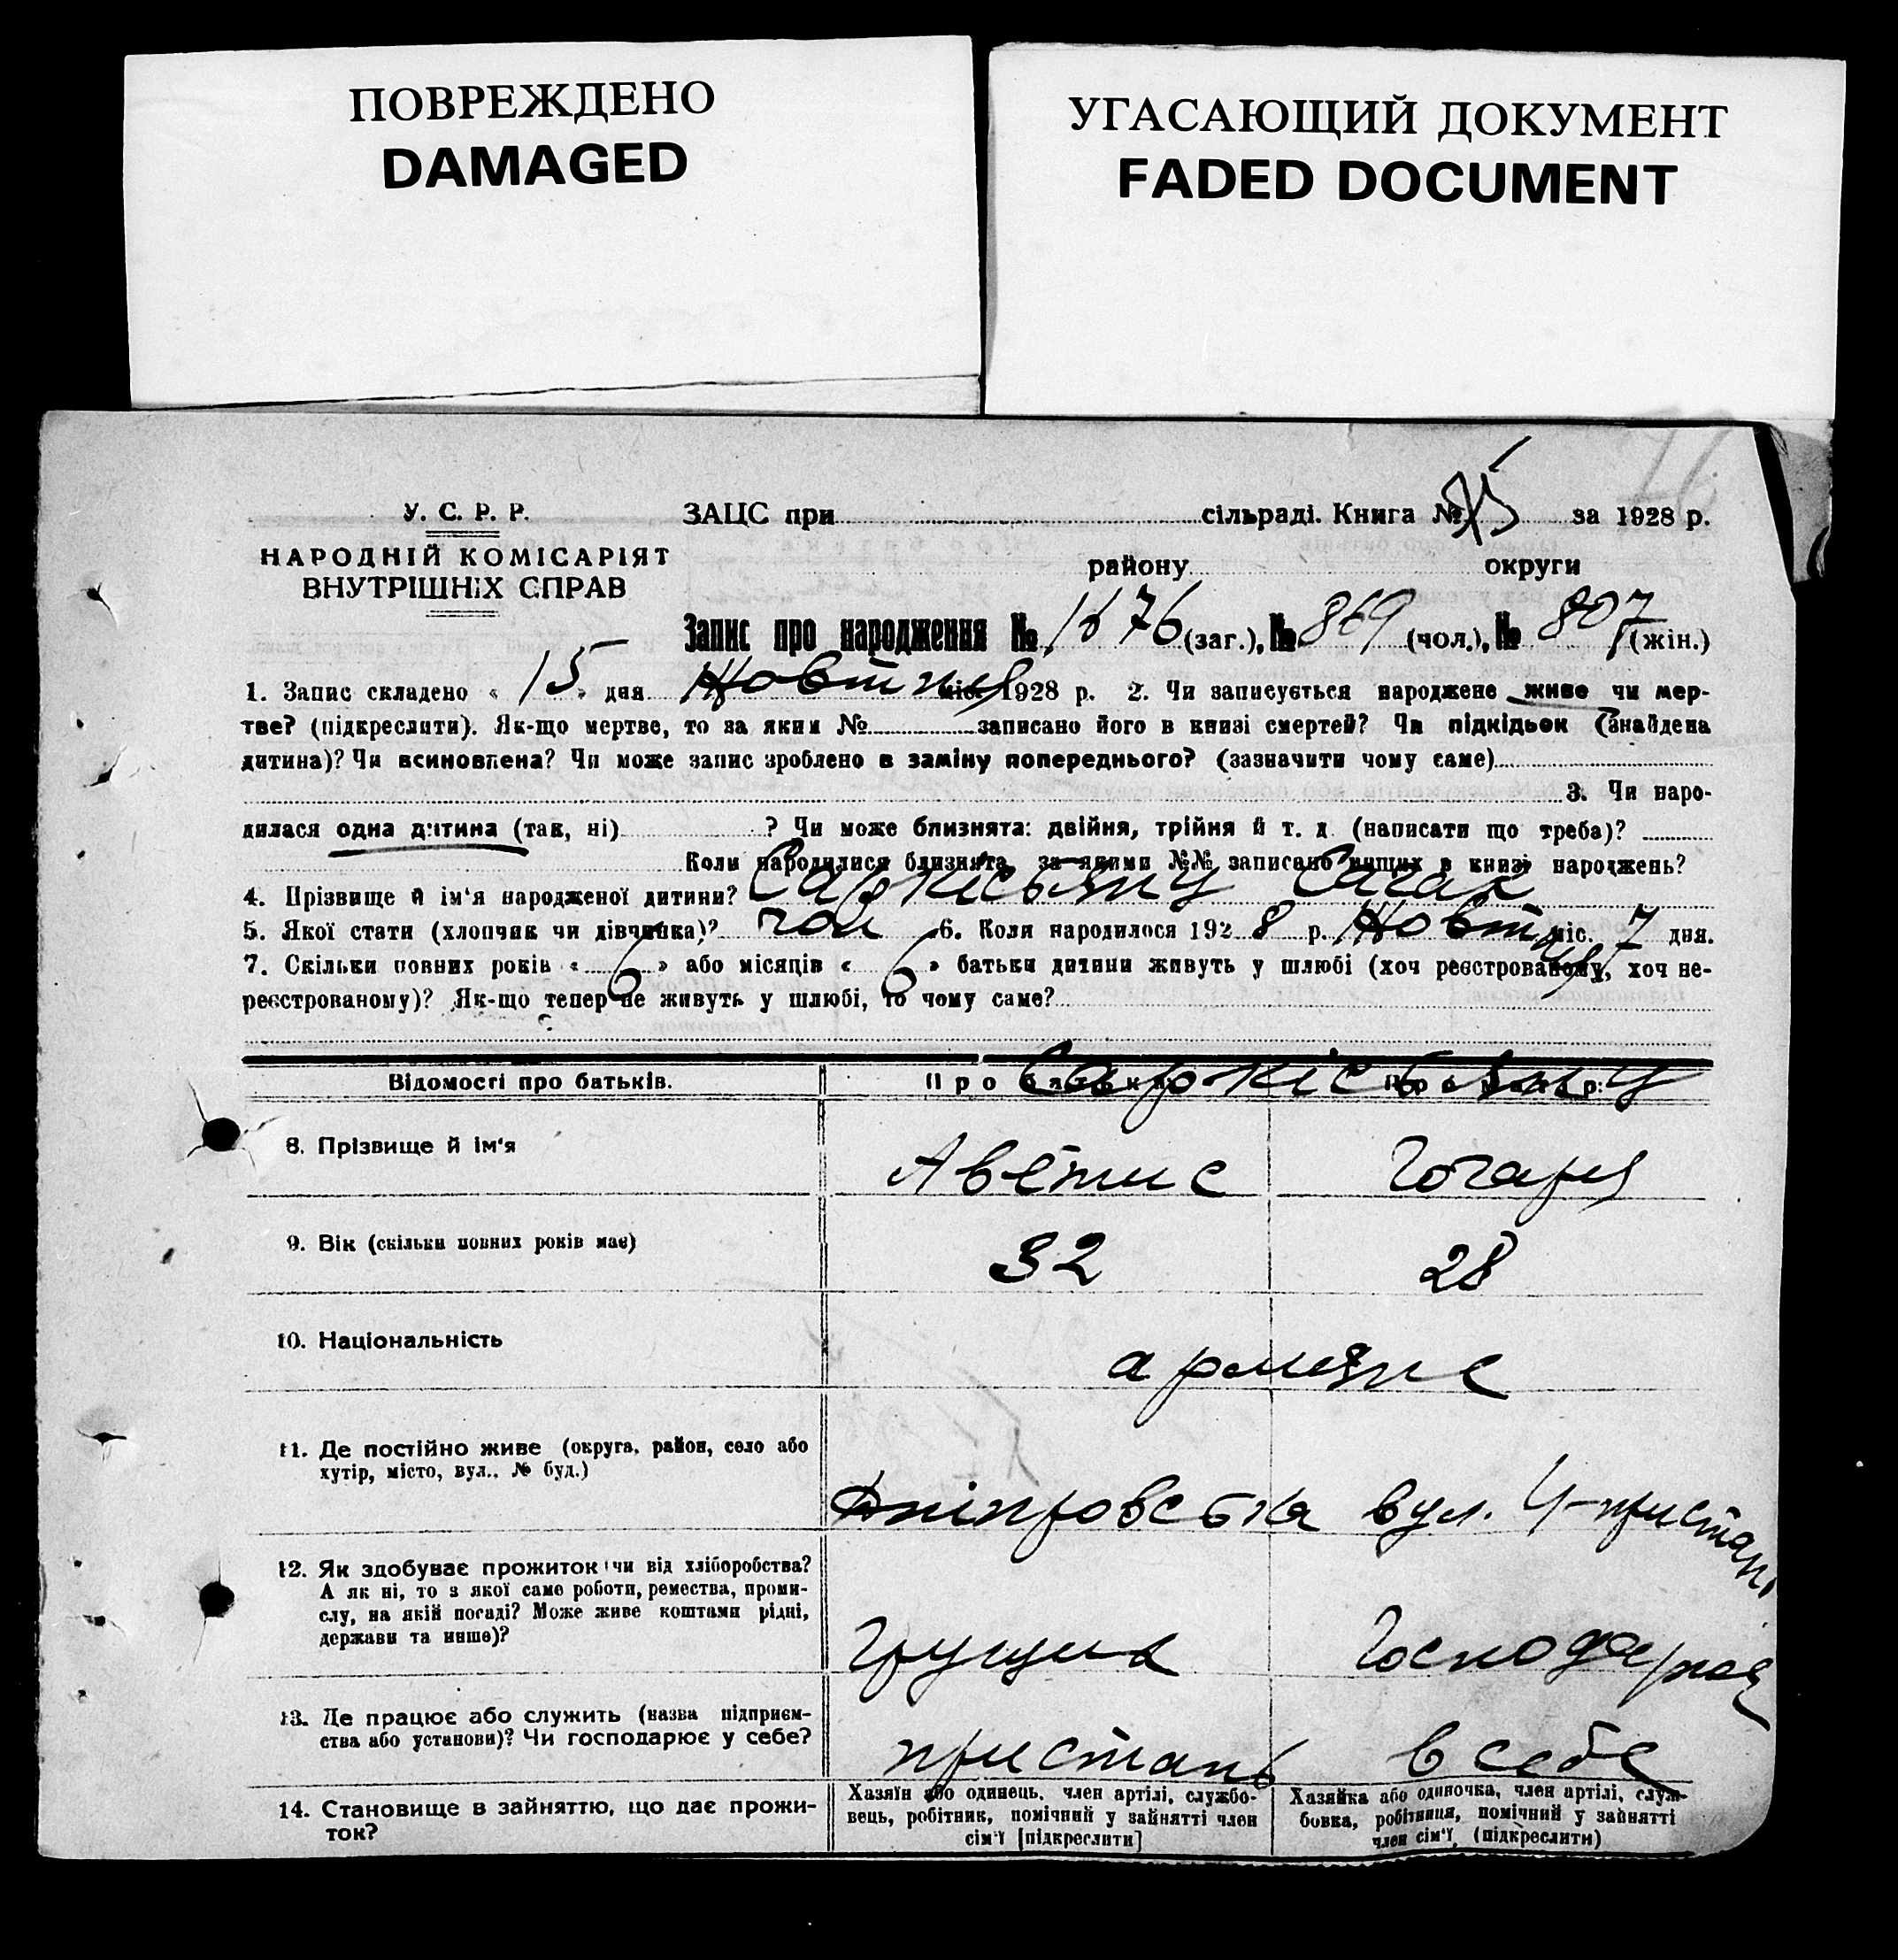 ПОВРЕЖДЕНО
DAMAGED
УГАСАЮЩИЙ ДОКУМЕНТ
FADED DOCUMENT
У. С. Р. Р.
НАРОДНІЙ КОМІСАРІЯТ
ВНУТРІШНІХ СПРАВ
ЗАЦС при сільраді. Книга № за 1928 р.
району округи
Запис про народження № 1676 (заг.), № 869 (чол.), № 807 (жін.)
1. Запис складено « 15 » дня Жовтня міс. 1928 р. 2. Чи записується народжене живе чи мер-
тве? (підкреслити). Як-що мертве, то за яким № записано його в книзі смертей? Чи підкідьок (знайдена
дитина)? Чи всиновлена? Чи може запис зроблено в заміну попереднього? (зазначити чому саме)
3. Чи наро-
дилася одна дитина (так, ні) ? Чи може близнята: двійня, трійня й т. д. (написати що треба)?
Коли народилися близнята, за якими №№ записано инших в книзі народжень?
4. Прізвище й ім'я народженої дитини? Саркісьянц Сагак
5. Якої стати (хлопчик чи дівчинка)? чол 6. Коли народилося 1928 р. Жовтня міс. 7 дня.
7. Скільки повних років « 6 » або місяців « 6 » батьки дитини живуть у шлюбі (хоч реєстрованому, хоч не-
реєстрованому)? Як-що тепер не живуть у шлюбі, то чому саме?
Відомості про батьків. Про батька Про матір:
Саркісьянц
8. Прізвище й ім'я Аветис Гогаря
9. Вік (скільки повних років має) 32 28
10. Національність армяне
11. Де постійно живе (округа, район, село або
хутір, місто, вул., № буд.)
Дніпровська вул. Ч-пристань
12. Як здобуває прожиток (чи від хліборобства?
А як ні, то з якої саме роботи, ремества, проми-
слу, на якій посаді? Може живе коштами рідні,
держави та инше)?
Грущик Господарная
13. Де працює або служить (назва підприєм-
ства або установи)? Чи господарює у себе?
пристань в себе
14. Становище в зайняттю, що дає прожи-
ток?
Хазяїн або одинець, член артілі, службо-
вець, робітник, помічний у зайнятті член
сім'ї [підкреслити]
Хазяйка або одиночка, член артілі, служ-
бовка, робітниця, помічний у зайнятті
член сім'ї, (підкреслити)